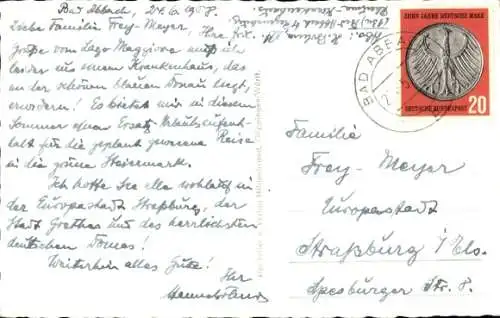 Bad Abbach, 24.6.1958.
Liebe Familie Frey-Meyer, Ihre
Grüße vom Lago Maggiore muß ich
leider aus einem Krankenhaus, das
an der schönen blauen Donau liegt,
erwidern! Es bietet mir in diesem
Sommer einen Ersatz-Urlaubsaufent-
halt für die geplant gewesene Reise
in die grüne Steiermark.
Ich hoffe Sie alle wohlauf in
der Europastadt Straßburg, der
Stadt Goethes und des herrlichsten
deutschen Domes!
Weiterhin alles Gute!
Ihr
Abs.:
ZEHN JAHRE DEUTSCHE MARK
DEUTSCHE BUNDESPOST
20
BAD ABBACH
Familie
Frey-Meyer
Europastadt
Straßburg i/Els.
Str. 8.